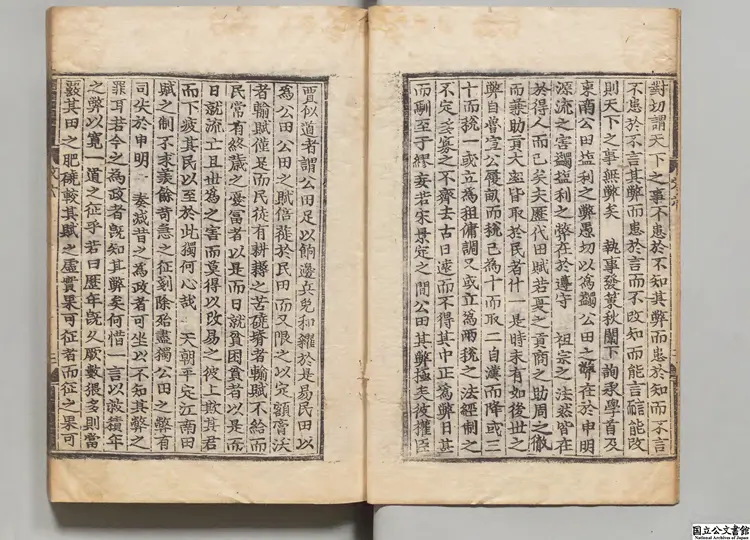 對切謂天下之事不患於不知其弊而患於知而不言
不患於不言其弊而患於言而不改知而能言言而能改
則天下之事無弊矣 執事發策秋闈下詢承學首及
東南公田鹽利之弊愚切以為蠲公田之弊在於申明
源流之害蠲鹽利之弊在於遵守 祖宗之法然皆在
於得人而已矣夫歷代田賦若夏之貢商之助周之徹
而兼助貢大率皆取於民者什一是時未有如後世之
弊自魯宣公履畝而稅已為十而取二自漢而降或三
十而稅一或立為租庸調又或立為兩稅之法經制之
不定多寡之不齊去古日遠而不得其中正為弊日甚
而馴至于繆妄若宋景定之間公田其弊極矣彼權臣
賈似道者謂公田足以餉邊兵免和糴於是易民田以
為公田公田之賦倍蓰於民田而又限之以定額膏沃
者輸賦僅足而民徒有耕耨之苦磽瘠者輸賦不給而
民常有終歲之憂富者以是而日就貧困貧者以是而
日就流亡且世為之害而莫得以改易之彼上欺其君
而下疲其民以至於此獨何心哉 天朝平定江南田
賦之制不求羨餘苛急之征剗除殆盡獨公田之弊有
司失於申明 奏減昔之為政者可坐以不知其弊之
罪耳若今之為政者既知其弊矣何惜一言以救積年
之弊以寬一道之征乎若曰歷年既久厥數猥多則當
覈其田之肥磽較其賦之虛實果可征者而征之果可
国立公文書館
National Archives of Japan